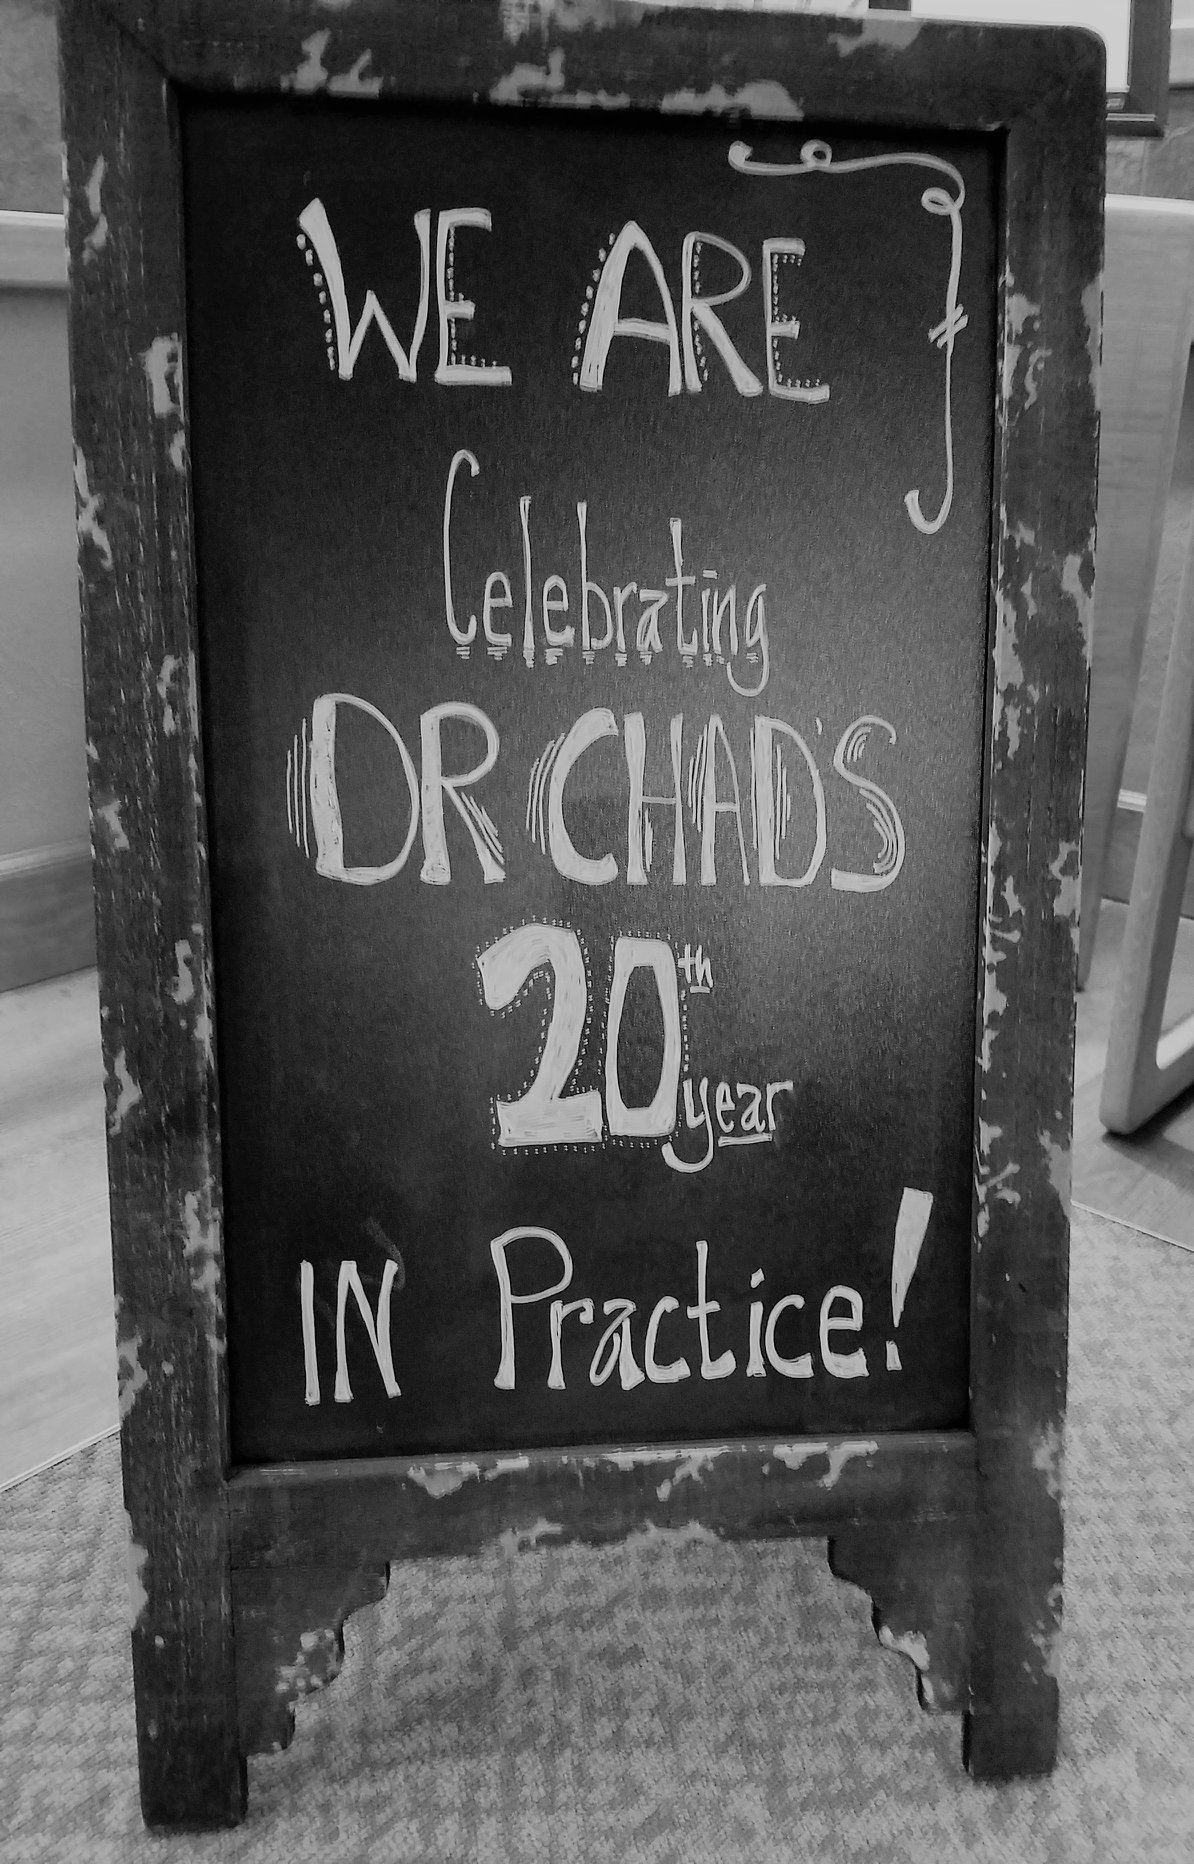 WE ARE
Celebrating
DR CHAD'S
20th year
IN Practice!